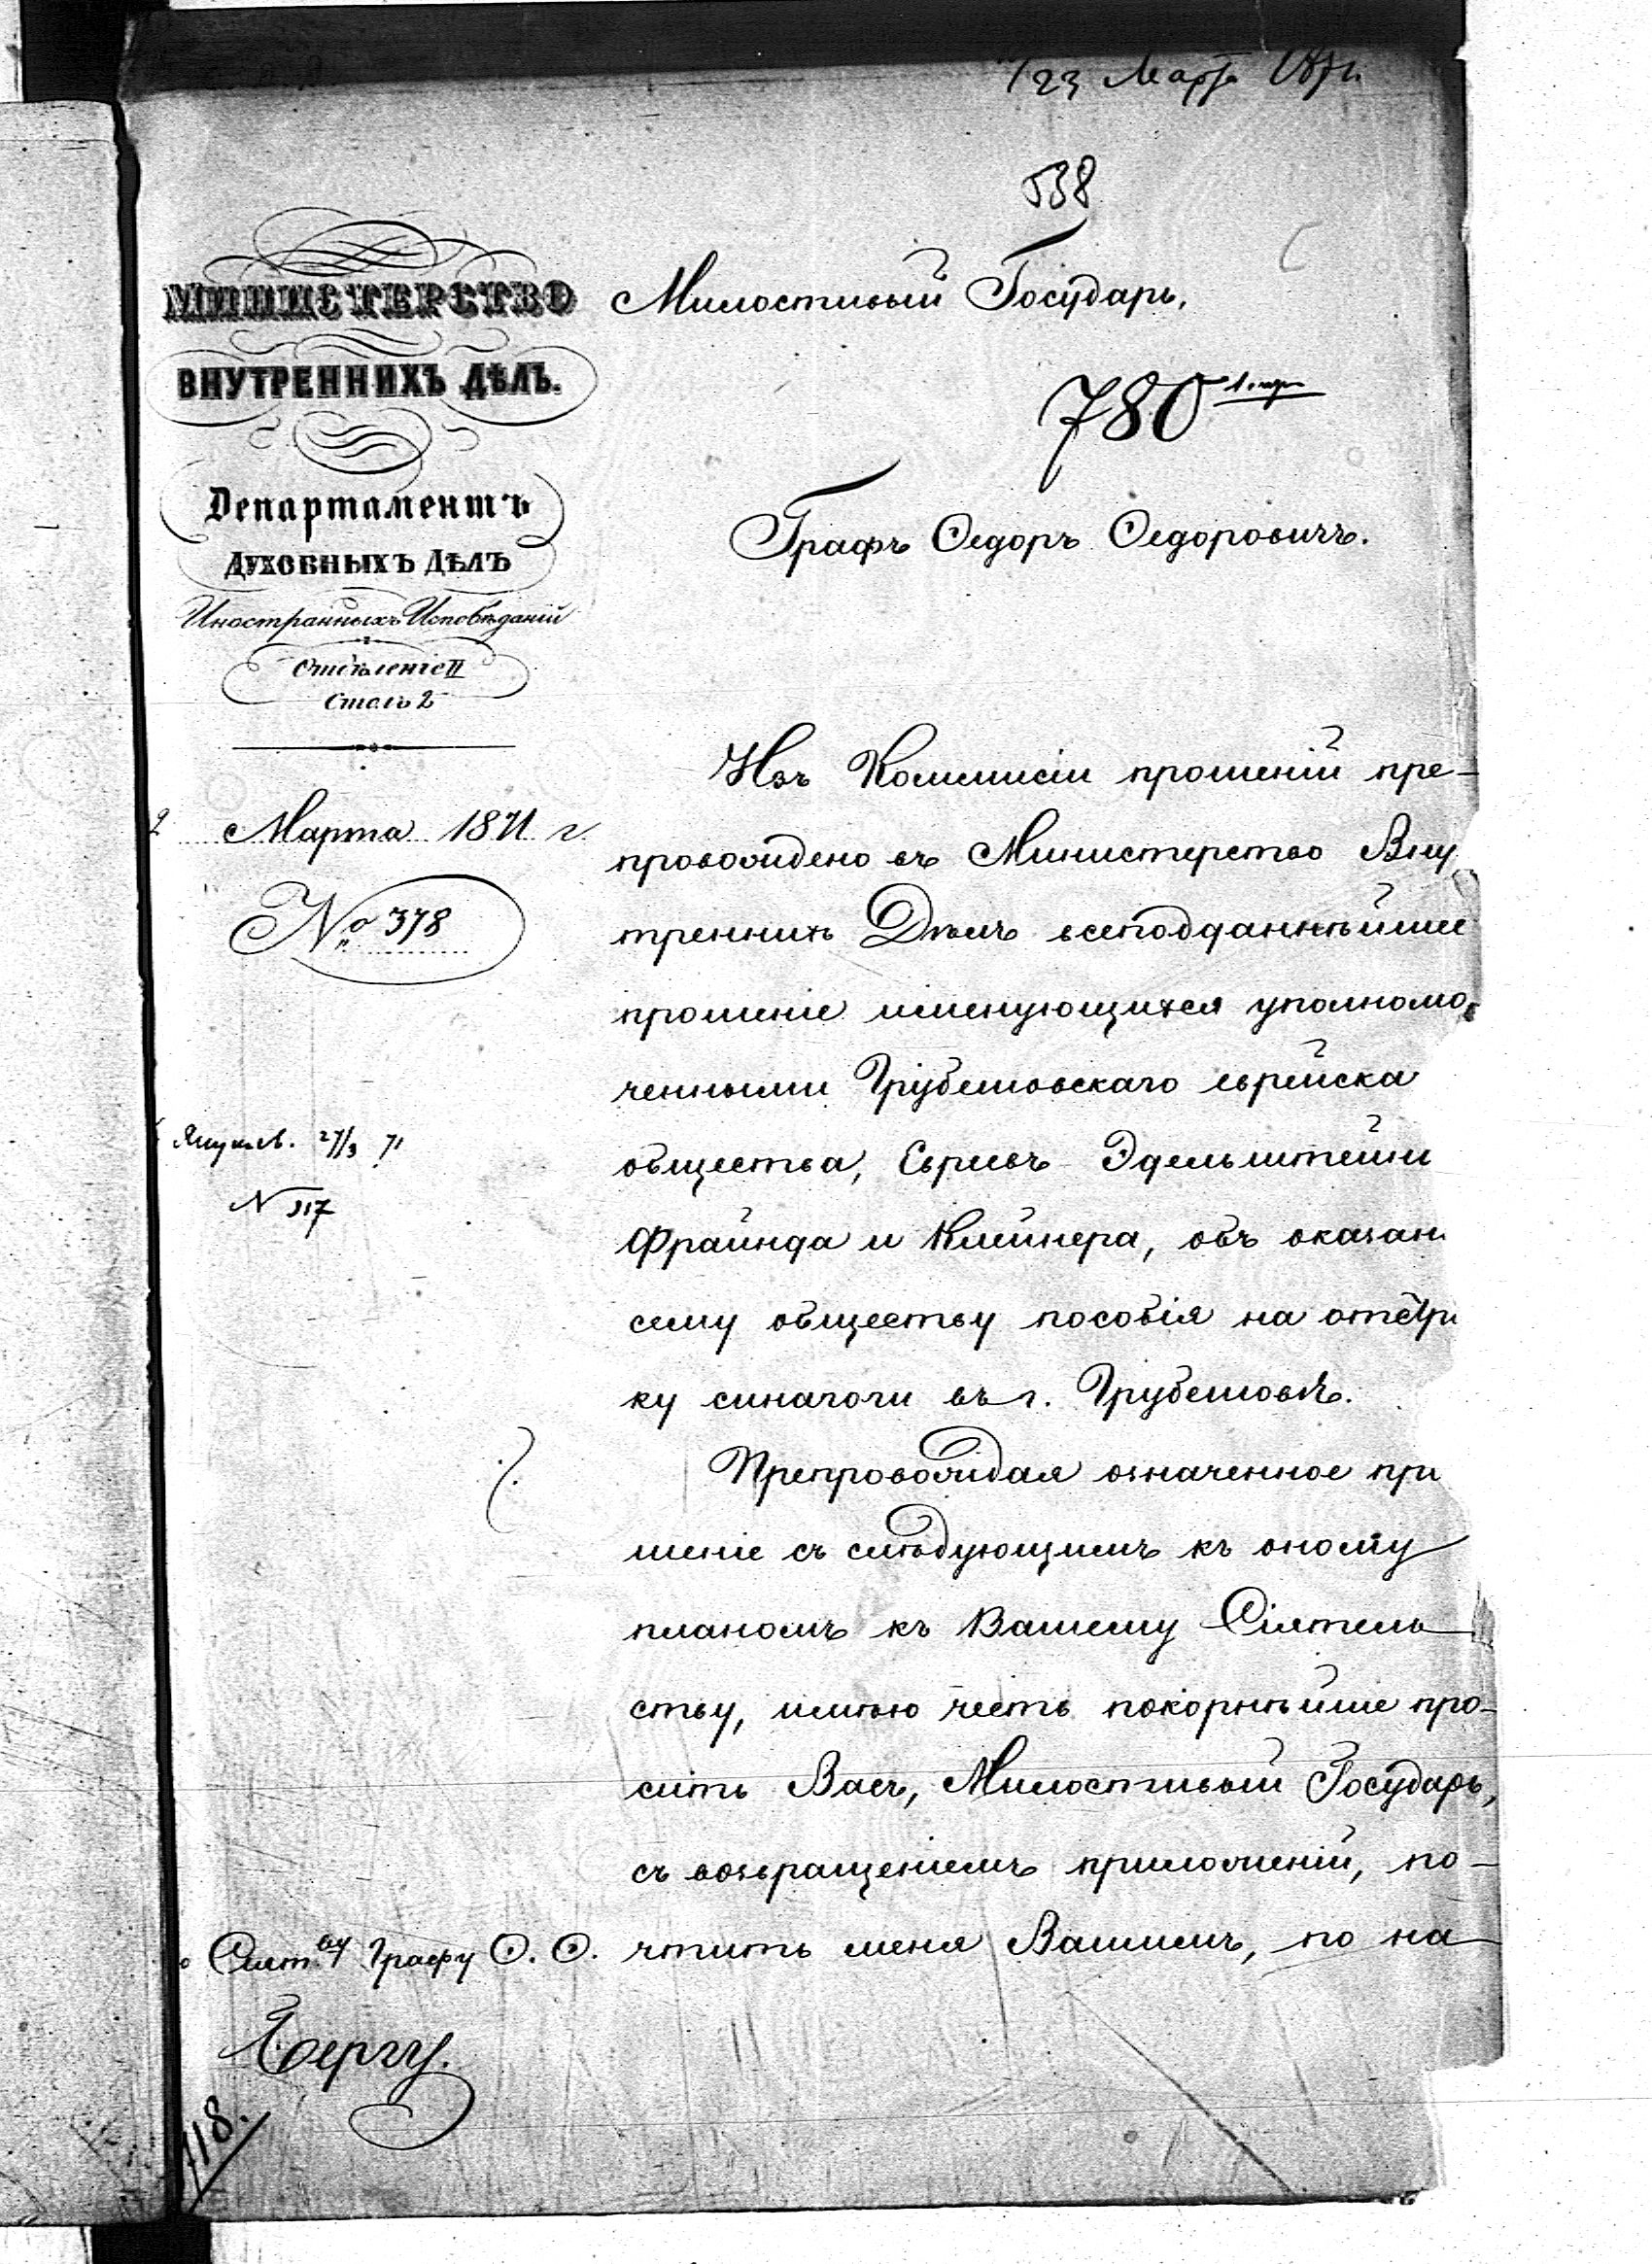 23 Марта 1871
538
МИНИСТЕРСТВО
ВНУТРЕННИХЪ ДѢЛЪ.
Департаментъ
ДУХОВНЫХЪ ДѢЛЪ
Иностранныхъ Исповѣданій
Отдѣленіе II
Столъ 2
Марта 1871 г.
№ 378
27/3 71
N 317
Милостивый Государь,
780
Графъ Ѳедоръ Ѳедоровичъ.
Изъ Коммисіи прошеній пре-
провождено въ Министерство Вну
треннихъ Дѣлъ всеподданнѣйшее
прошеніе именующихся уполномо
ченными Грубешовскаго еврейска
общества, Евреевъ Эдельштейн
Фрайнда и Клейнера, объ оказан
сему обществу пособія на отстр
ку синагоги въ г. Грубешовѣ.
Препровождая означенное пр
шеніе съ слѣдующимъ къ оному
планомъ къ Вашему Сіятель
ству, имѣю честь покорнѣйше про-
сить Васъ, Милостивый Государь,
съ возвращеніемъ приложеній, по-
чтить меня Вашимъ, по на
Сіят.ву Графу Ѳ. Ѳ.
Бергу.
118.